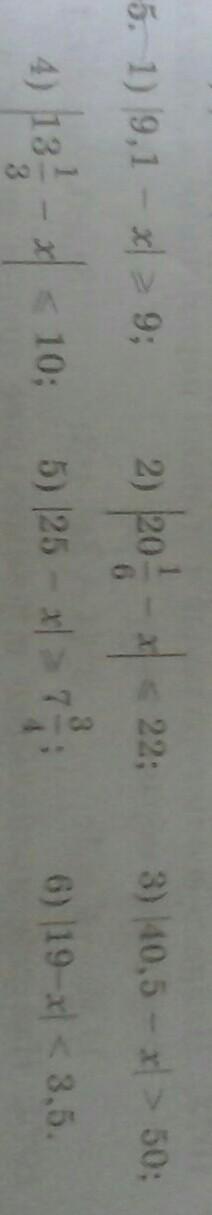 5. 1) |9,1 − x| ⩾ 9; 2) |20 1/6 − x| ⩽ 22; 3) |40,5 − x| > 50;
4) |13 1/3 − x| ⩽ 10; 5) |25 − x| > 7 3/4; 6) |19−x| < 3,5.